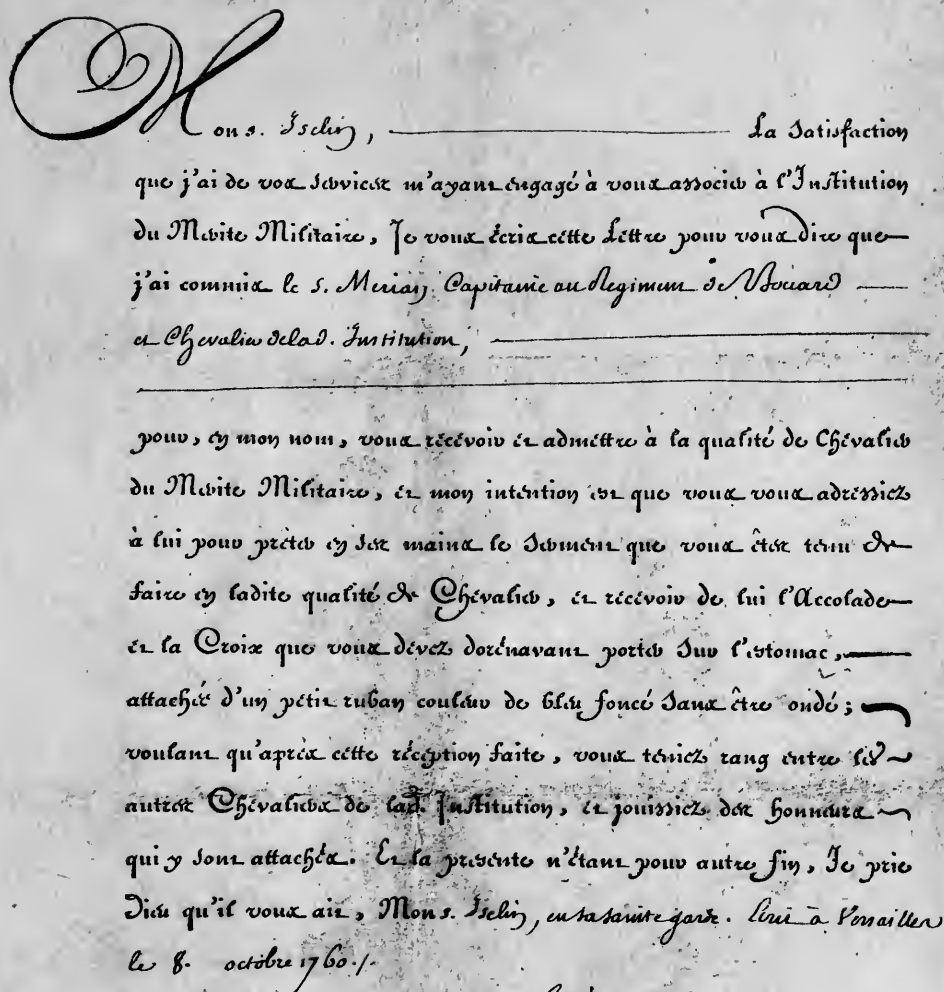 Mons. Iselin, La Satisfaction
que j'ai de vos services m'ayant engagé à vous associer à l'Institution
du Mérite Militaire, Je vous écris cette Lettre pour vous dire que
j'ai commis le S. Merian Capitaine au Regiment de
et Chevalier de lad. Institution,
pour, en mon nom, vous recevoir et admettre à la qualité de Chevalier
du Mérite Militaire, et mon intention est que vous vous adressiez
à lui pour prêter en ses mains le Serment que vous êtes tenu de
faire en ladite qualité de Chevalier, et recevoir de lui l'Accolade
et la Croix que vous devez dorénavant porter Sur l'estomac,
attachée d'un petit ruban couleur de bleu foncé Sans être ondé;
voulant qu'après cette réception faite, vous teniez rang entre les
autres Chevaliers de lad. Institution, et jouissiez des honneurs
qui y Sont attachés. Et la présente n'étant pour autre fin, Je prie
Dieu qu'il vous ait, Mons. Iselin, en sa sainte garde. Ecrit à Versailles
le 8. octobre 1760./.